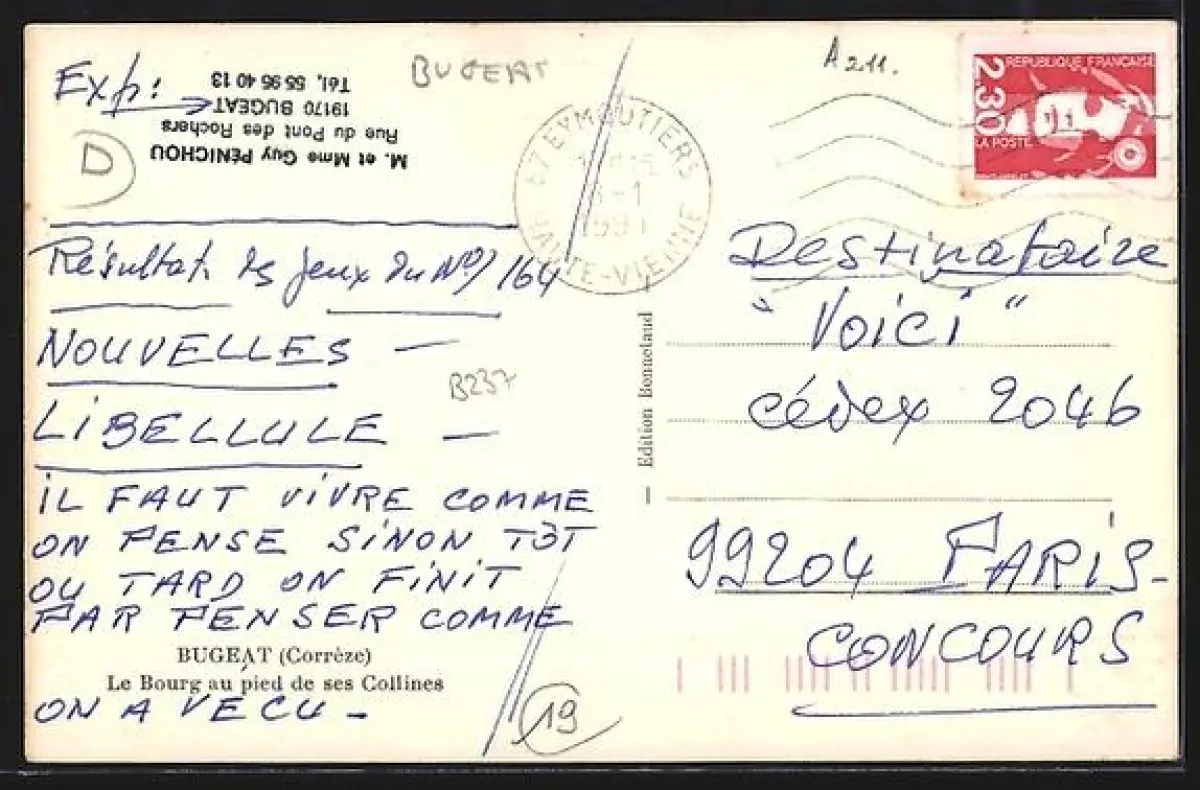 Exp:
M. et Mme Guy PÉNICHOU
Rue du Pont des Rochers
19170 BUGEAT
Tél. 55 95 40 13
D
BUGEAT
A 211.
87 EYMOUTIERS
HAUTE-VIENNE
2.30
REPUBLIQUE FRANÇAISE
LA POSTE
Résultat des jeux du N° 164
NOUVELLES -
B237
LIBELLULE -
IL FAUT VIVRE COMME
ON PENSE SINON TÔT
OU TARD ON FINIT
PAR PENSER COMME
BUGEAT (Corrèze)
Le Bourg au pied de ses Collines
ON A VECU -
19
Edition Bonnetaud
Destinataire
"Voici"
cédex 2046
99204 PARIS-
CONCOURS